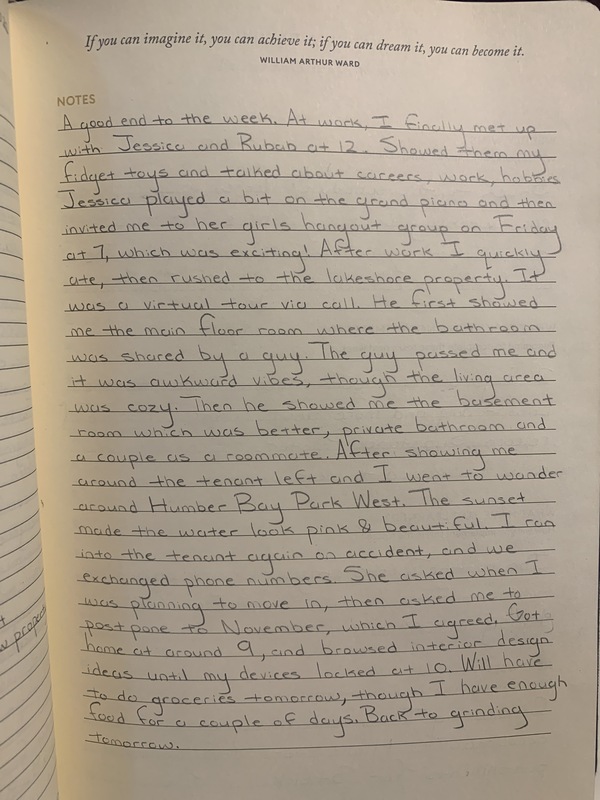 If you can imagine it, you can achieve it; if you can dream it, you can become it.
WILLIAM ARTHUR WARD
NOTES
A good end to the week. At work, I finally met up
with Jessica and Rubab at 12. Showed them my
fidget toys and talked about careers, work, hobbies
Jessica played a bit on the grand piano and then
invited me to her girls hangout group on Friday
at 7, which was exciting! After work I quickly
ate, then rushed to the lakeshore property. It
was a virtual tour via call. He first showed
me the main floor room where the bathroom
was shared by a guy. The guy passed me and
it was awkward vibes, though the living area
was cozy. Then he showed me the basement
room which was better, private bathroom and
a couple as a roommate. After showing me
around the tenant left and I went to wander
around Humber Bay Park West. The sunset
made the water look pink & beautiful. I ran
into the tenant again on accident, and we
exchanged phone numbers. She asked when I
was planning to move in, then asked me to
postpone to November, which I agreed. Got
home at around 9, and browsed interior design
ideas until my devices locked at 10. Will have
to do groceries tomorrow, though I have enough
food for a couple of days. Back to grinding
tomorrow.